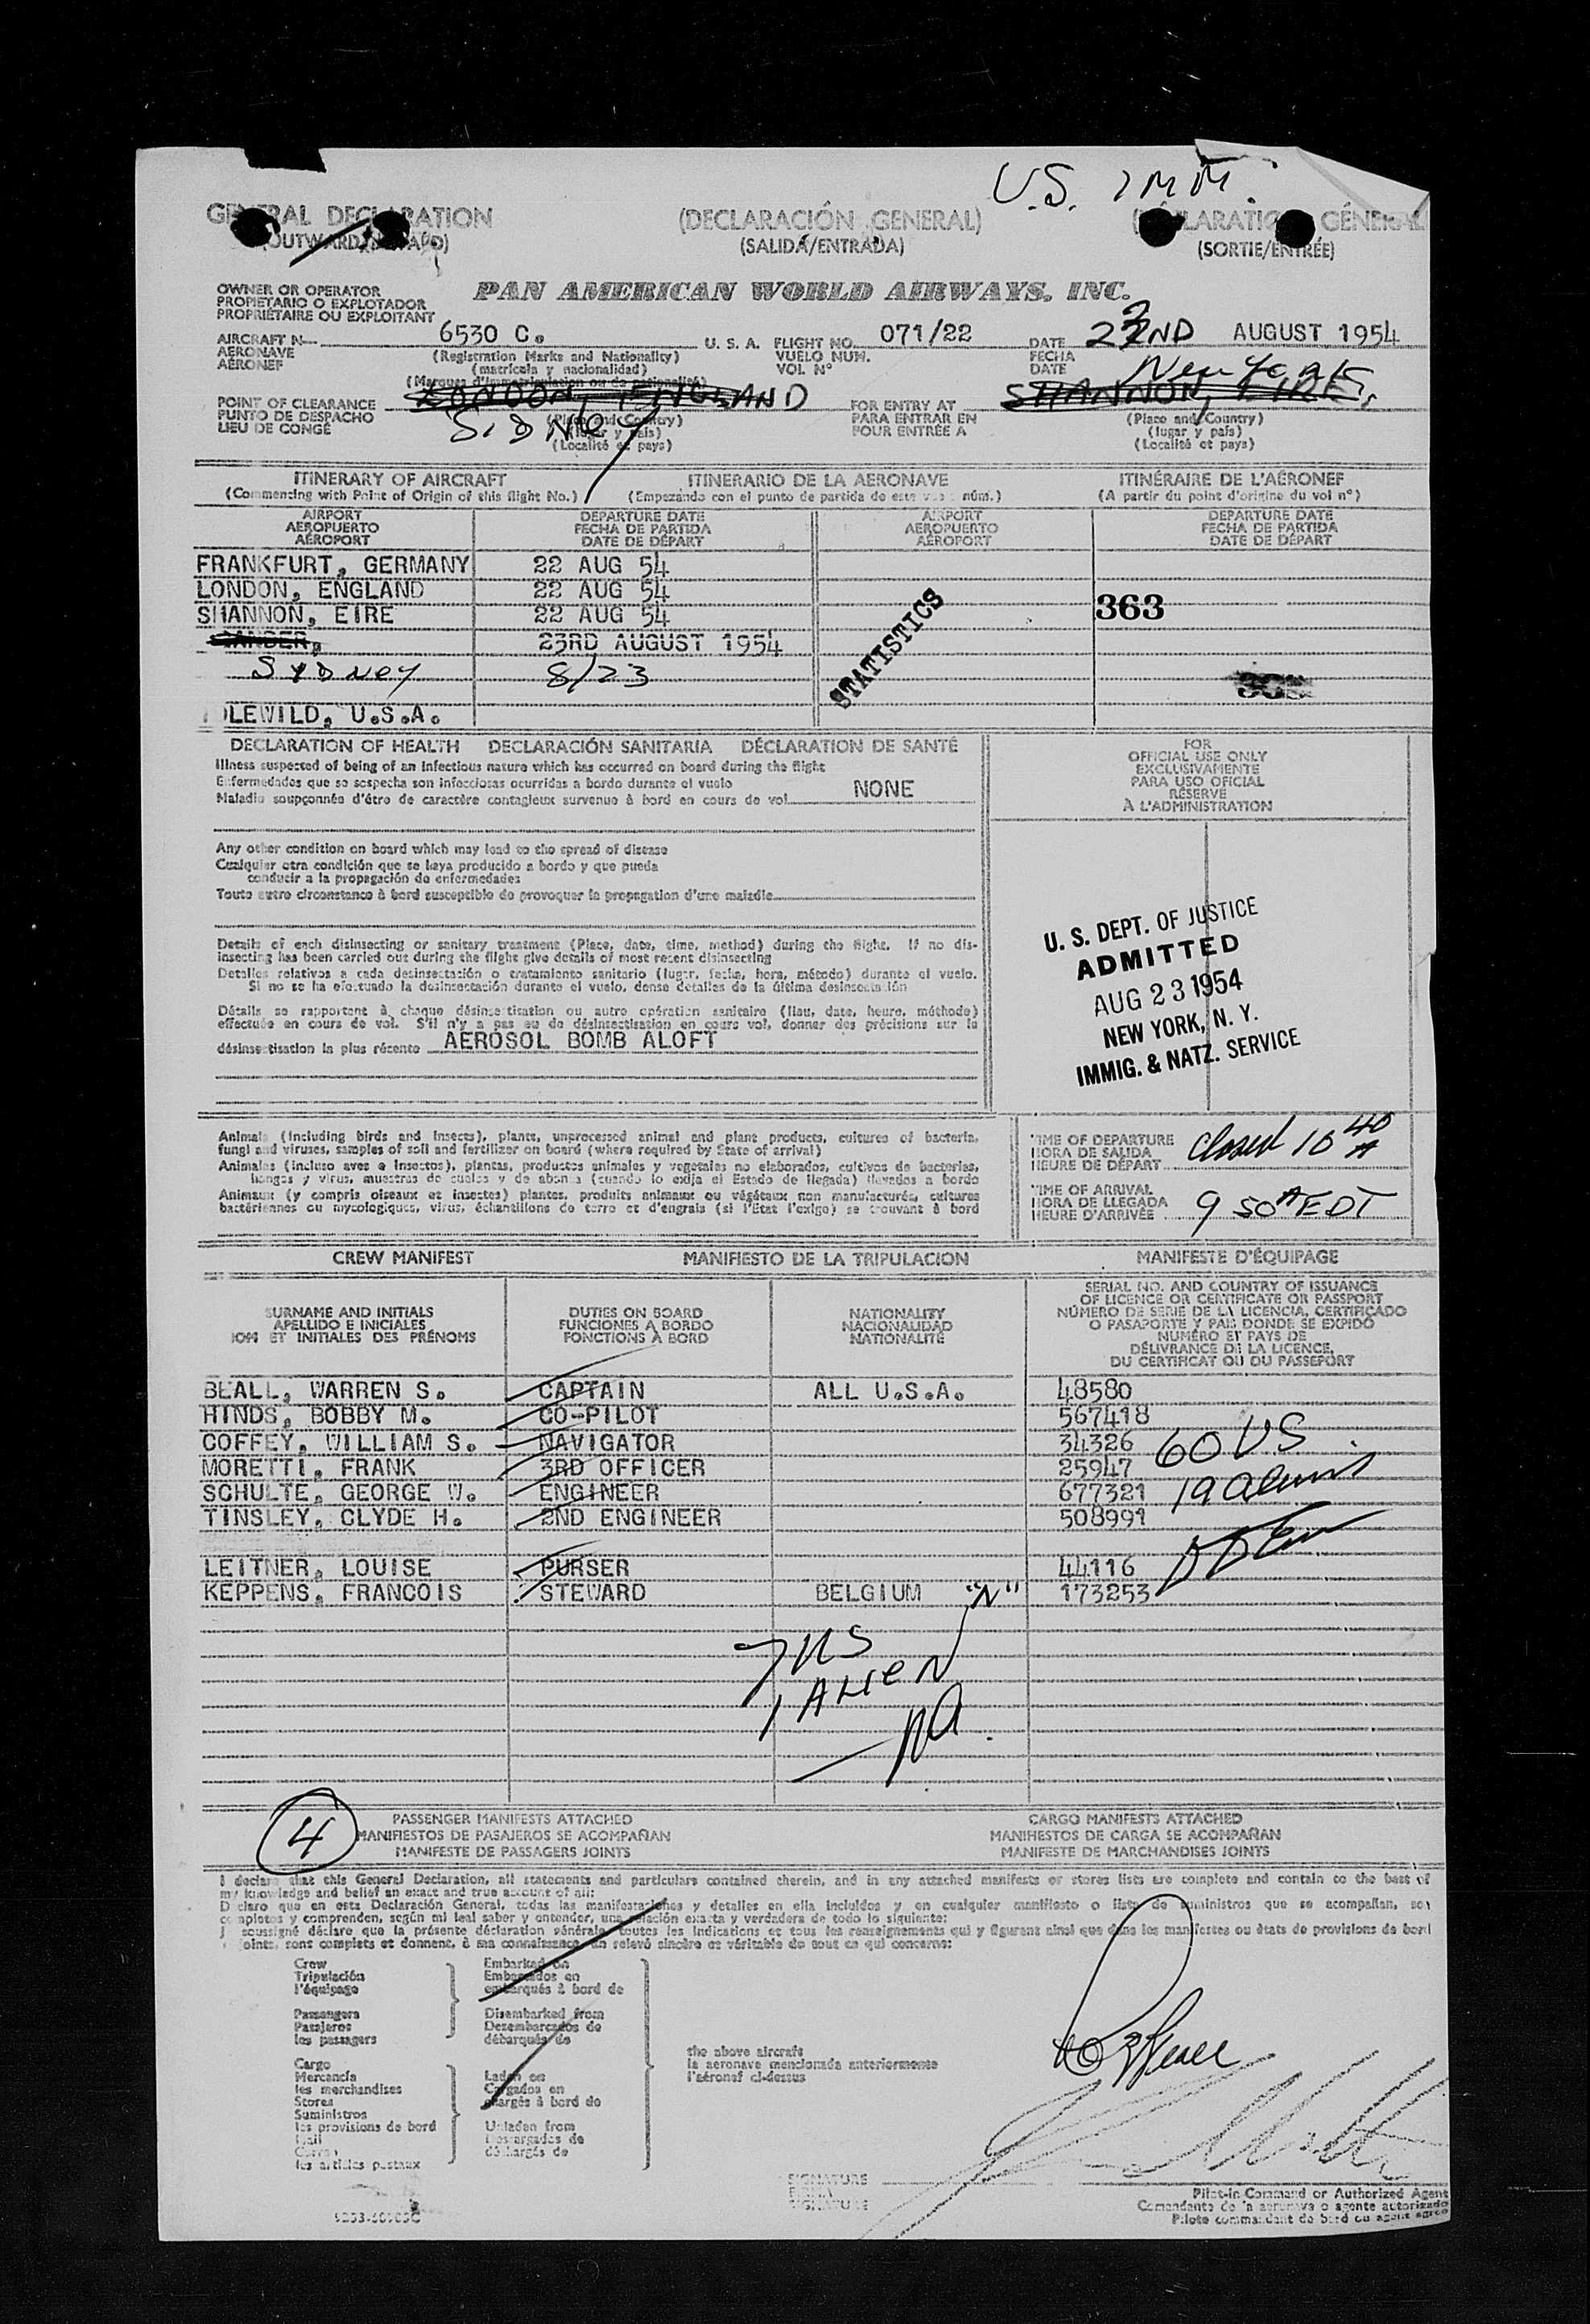 U.S. IMM.
GENERAL DECLARATION (DECLARACIÓN GENERAL) (DÉCLARATION GÉNÉRALE)
(OUTWARD/INWARD) (SALIDA/ENTRADA) (SORTIE/ENTRÉE)
OWNER OR OPERATOR
PROPIETARIO O EXPLOTADOR
PROPRIÉTAIRE OU EXPLOITANT
PAN AMERICAN WORLD AIRWAYS, INC.
AIRCRAFT N— 6530 C. U. S. A. FLIGHT NO. 071/22 DATE 23 22ND AUGUST 1954
AERONAVE (Registration Marks and Nationality) VUELO NUM. FECHA
AERONEF (matrícula y nacionalidad) VOL N° DATE New York
(Marques d'immatriculation ou de nationalité)
POINT OF CLEARANCE LONDON, ENGLAND FOR ENTRY AT SHANNON, EIRE,
PUNTO DE DESPACHO Sidney (Place and Country) PARA ENTRAR EN (Place and Country)
LIEU DE CONGÉ (lugar y país) POUR ENTRÉE A (lugar y país)
(Localité et pays) (Localité et pays)
ITINERARY OF AIRCRAFT ITINERARIO DE LA AERONAVE ITINÉRAIRE DE L'AÉRONEF
(Commencing with Point of Origin of this flight No.) (Empezando con el punto de partida de este vuelo núm.) (A partir du point d'origine du vol n°)
AIRPORT DEPARTURE DATE AIRPORT DEPARTURE DATE
AEROPUERTO FECHA DE PARTIDA AEROPUERTO FECHA DE PARTIDA
AÉROPORT DATE DE DÉPART AÉROPORT DATE DE DÉPART
FRANKFURT, GERMANY 22 AUG 54
LONDON, ENGLAND 22 AUG 54
SHANNON, EIRE 22 AUG 54 363
GANDER, 23RD AUGUST 1954
STATISTICS
Sydney 8/23
IDLEWILD, U.S.A.
DECLARATION OF HEALTH DECLARACIÓN SANITARIA DÉCLARATION DE SANTÉ
Illness suspected of being of an infectious nature which has occurred on board during the flight
Enfermedades que se sospecha son infecciosas ocurridas a bordo durante el vuelo
Maladie soupçonnée d'être de caractère contagieux survenue à bord en cours de vol NONE
FOR
OFFICIAL USE ONLY
EXCLUSIVAMENTE
PARA USO OFICIAL
RÉSERVÉ
À L'ADMINISTRATION
Any other condition on board which may lead to the spread of disease
Cualquier otra condición que se haya producido a bordo y que pueda
conducir a la propagación de enfermedades
Toute autre circonstance à bord susceptible de provoquer la propagation d'une maladie
Details of each disinsecting or sanitary treatment (Place, date, time, method) during the flight. If no dis-
insecting has been carried out during the flight give details of most recent disinsecting
Detalles relativos a cada desinsectación o tratamiento sanitario (lugar, fecha, hora, método) durante el vuelo.
Si no se ha efectuado la desinsectación durante el vuelo, dense detalles de la última desinsectación
Détails se rapportant à chaque désinsectisation ou autre opération sanitaire (lieu, date, heure, méthode)
effectuée en cours de vol. S'il n'y a pas eu de désinsectisation en cours vol, donner des précisions sur la
désinsectisation la plus récente AEROSOL BOMB ALOFT
U. S. DEPT. OF JUSTICE
ADMITTED
AUG 23 1954
NEW YORK, N. Y.
IMMIG. & NATZ. SERVICE
Animals (including birds and insects), plants, unprocessed animal and plant products, cultures of bacteria,
fungi and viruses, samples of soil and fertilizer on board (where required by State of arrival)
Animales (incluso aves e insectos), plantas, productos animales y vegetales no elaborados, cultivos de bacterias,
hongos y virus, muestras de suelos y de abonos (cuando lo exija el Estado de llegada) llevados a bordo
Animaux (y compris oiseaux et insectes) plantes, produits animaux ou végétaux non manufacturés, cultures
bactériennes ou mycologiques, virus, échantillons de terre et d'engrais (si l'Etat l'exige) se trouvant à bord
TIME OF DEPARTURE
HORA DE SALIDA
HEURE DE DÉPART Closed 10 40 A
TIME OF ARRIVAL
HORA DE LLEGADA
HEURE D'ARRIVÉE 9 50 A EDT
CREW MANIFEST MANIFIESTO DE LA TRIPULACION MANIFESTE D'ÉQUIPAGE
SURNAME AND INITIALS
APELLIDO E INICIALES
NOM ET INITIALES DES PRÉNOMS
DUTIES ON BOARD
FUNCIONES A BORDO
FONCTIONS À BORD
NATIONALITY
NACIONALIDAD
NATIONALITÉ
SERIAL NO. AND COUNTRY OF ISSUANCE
OF LICENCE OR CERTIFICATE OR PASSPORT
NÚMERO DE SERIE DE LA LICENCIA, CERTIFICADO
O PASAPORTE Y PAIS DONDE SE EXPIDÓ
NUMÉRO ET PAYS DE
DÉLIVRANCE DE LA LICENCE,
DU CERTIFICAT OU DU PASSEPORT
BEALL, WARREN S. CAPTAIN ALL U.S.A. 48580
HINDS, BOBBY M. CO-PILOT 567418
COFFEY, WILLIAM S. NAVIGATOR 34326
MORETTI, FRANK 3RD OFFICER 25947
SCHULTE, GEORGE W. ENGINEER 677321
TINSLEY, CLYDE H. 2ND ENGINEER 508991
60 US
19 Aliens
LEITNER, LOUISE PURSER 44116
KEPPENS, FRANCOIS STEWARD BELGIUM "N" 173253
7 US
1 ALIEN
4
PASSENGER MANIFESTS ATTACHED CARGO MANIFESTS ATTACHED
MANIFIESTOS DE PASAJEROS SE ACOMPAÑAN MANIFIESTOS DE CARGA SE ACOMPAÑAN
MANIFESTE DE PASSAGERS JOINTS MANIFESTE DE MARCHANDISES JOINTS
I declare that this General Declaration, all statements and particulars contained therein, and in any attached manifests or stores lists are complete and contain to the best of
my knowledge and belief an exact and true account of all:
Declaro que en esta Declaración General, todas las manifestaciones y detalles en ella incluidos y en cualquier manifiesto o lista de suministros que se acompañan, son
completos y comprenden, según mi leal saber y entender, una relación exacta y verdadera de todo lo siguiente:
soussigné déclare que la présente déclaration générale, toutes les indications et tous les renseignements qui y figurent ainsi que dans les manifestes ou états de provisions de bord
joints, sont complets et donnent, à ma connaissance, un relevé sincère et véritable de tout ce qui concerne:
Crew
Tripulación
l'équipage
Passengers
Pasajeros
les passagers
Cargo
Mercancía
les merchandises
Stores
Suministros
les provisions de bord
Mail
Correo
les articles postaux
Embarked on
Embarcados en
embarqués à bord de
Disembarked from
Desembarcados de
débarqués de
Laden on
Cargados en
chargés à bord de
Unladen from
Descargados de
déchargés de
the above aircraft
la aeronave mencionada anteriormente
l'aéronef ci-dessus
SIGNATURE
FIRMA
SIGNATURE
Pilot-in-Command or Authorized Agent
Comandante de la aeronave o agente autorizado
Pilote commandant de bord ou agent agréé